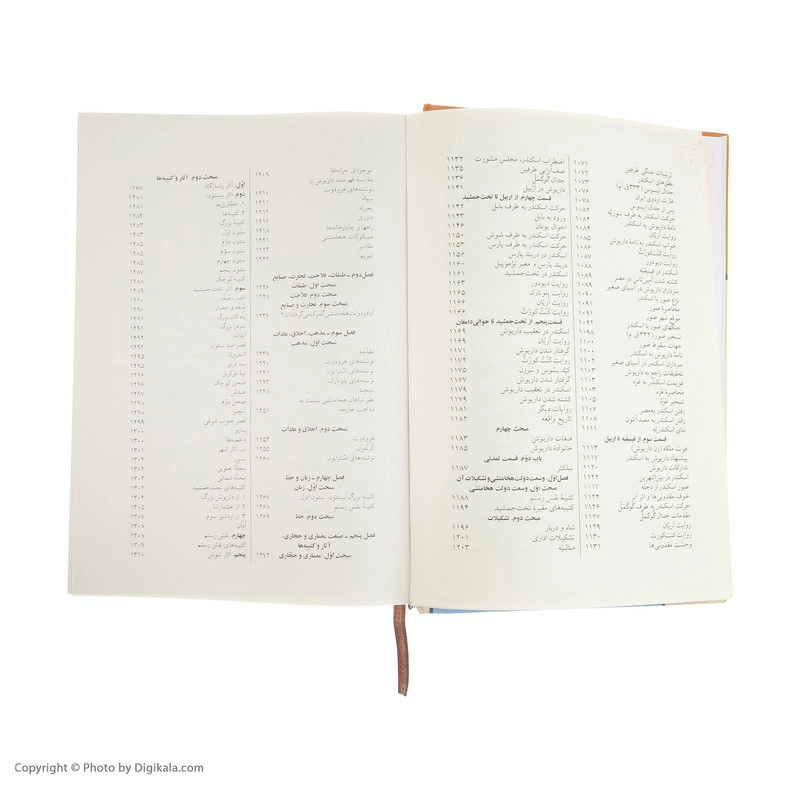 ترتیبات جنگی طرفین ۱۰۷۱
نطق‌های اسکندر ۱۰۷۳
جدال ایسوس (۳۳۳ ق. م) ۱۰۷۶
غارت اردوی ایران ۱۰۷۸
پس از جدال ایسوس ۱۰۸۲
حرکت اسکندر به طرف سوریّه ۱۰۸۴
نامهٔ داریوش به اسکندر
روایت آرّیان
جواب اسکندر به نامهٔ داریوش
روایت کنت‌کورث
روایت دیودور
اسکندر در فینیقیّه
کشته شدن آمین‌تاس در مصر
سرداران داریوش در آسیای صغیر
نزاع صور با اسکندر
محاصرهٔ صور
موقع شهر صور
جنگهای صور با اسکندر
تسخیر صور (۳۳۲ ق. م)
جهات سقوط صور
نامهٔ داریوش به اسکندر
سرداران اسکندر در آسیای صغیر
تحقیقات راجع به داریوش
عزیمت اسکندر به غزه
محاصرهٔ غزه
تسخیر غزّه ۱۱۰۵
رفتن اسکندر به مصر ۱۱۰۷
رفتن اسکندر به معبد آمّون ۱۱۰۸
بنای اسکندریّه ۱۱۱۱
قسمت سوم. از فینیقیه تا اربیل
فوت ملکه (زن داریوش) ۱۱۱۳
پیشنهاد داریوش به اسکندر ۱۱۱۷
تدارکات داریوش ۱۱۲۰
اسکندر در بین‌النهرین
عبور اسکندر از دجله
خوف مقدونی‌ها و اثر آن ۱۱۲۴
حرکت اسکندر به طرف گوگمل ۱۱۲۶
مقدمات جدال گوگمل ۱۱۲۷
روایت آرّیان ۱۱۲۹
روایت کنت‌کورث ۱۱۳۰
وحشت مقدونی‌ها ۱۱۳۱
اضطراب اسکندر، مجلس مشورت ۱۱۳۲
صف‌آرایی طرفین ۱۱۳۵
جدال گوگمل ۱۱۳۶
داریوش در اربیل ۱۱۴۱
قسمت چهارم. از اربیل تا تخت‌جمشید
حرکت اسکندر به طرف بابل ۱۱۴۲
ورود به بابل ۱۱۴۳
احوال یونان ۱۱۴۶
حرکت اسکندر به طرف شوش ۱۱۵۰
حرکت اسکندر به طرف پارس ۱۱۵۳
اسکندر در دربند پارس ۱۱۵۶
دربند پارس و معبر ترموپیل ۱۱۶۰
اسکندر در تخت‌جمشید ۱۱۶۱
روایت دیودور ۱۱۶۳
روایت پلوتارک ۱۱۶۵
روایت آرّیان ۱۱۶۶
روایت کنت کورث ۱۱۶۶
قسمت پنجم. از تخت‌جمشید تا حوالی دامغان
اسکندر در تعقیب داریوش ۱۱۶۹
روایت آرّیان ۱۱۶۹
گرفتار شدن داریوش ۱۱۷۱
روایت کنت کورث ۱۱۷۲
کید بسّوس و نبرزن ۱۱۷۵
گرفتار شدن داریوش ۱۱۷۷
اسکندر در تعقیب داریوش ۱۱۷۷
کشته شدن داریوش ۱۱۷۹
روایات دیگر ۱۱۸۱
تاریخ واقعه ۱۱۸۲
مبحث چهارم
صفات داریوش ۱۱۸۳
خانوادهٔ داریوش ۱۱۸۵
باب دوّم. قسمت تمدّنی
تذکّر ۱۱۸۷
فصل اوّل. وسعت دولت هخامنشی و تشکیلات آن
مبحث اوّل. وسعت دولت هخامنشی
کتیبهٔ نقش رستم ۱۱۸۸
کتیبه‌های مقبرهٔ تخت‌جمشید ۱۱۹۴
مبحث دوم. تشکیلات
شاه و دربار ۱۱۹۶
تشکیلات اداری ۱۲۰۱
مـالـیّه ۱۲۰۳
موجودی خزانه‌ها ۱۲۰۹
مقایسهٔ فهرست داریوش با
نوشته‌های هرودوت ۱۲۱۰
سپاه
بحریه ۱۲۱۴
داوری ۱۲۱۶
راهها و چاپارخانه‌ها ۱۲۱۸
مسکوکات هخامنشی ۱۲۲۱
مقادیر ۱۲۲۳
تقویم ۱۲۲۴
فصل دوم ـ طبقات، فلاحت، تجارت، صنایع
مبحث اول. طبقات ۱۲۲۶
مبحث دوم. فلاحت ۱۲۲۸
مبحث سوم. تجارت و صنایع
آیا دولت هخامنشی گمرک می‌گرفته اند؟ ۱۲۳۶
فصل سوم ـ مذهب، اخلاق، عادات
مبحث اول. مذهب
مقدّمه ۱۲۳۸
نوشته‌های هرودوت ۱۲۴۰
نوشته‌های استرابون
نوشته‌های پلوتارک
نتیجه ۱۲۴۸
نظر شاهان هخامنشی نسبت به
مذاهب خارجه ۱۲۵۱
مبحث دوم. اخلاق و عادات
هرودوت ۱۲۵۴
گزنفون ۱۲۵۵
نوشته‌های استرابون ۱۲۶۰
فصل چهارم ـ زبان و خط
مبحث اوّل. زبان
کتیبهٔ بزرگ بیستون، ستون اول ۱۲۶۷
کتیبه‌های نقش رستم ۱۲۶۸
مبحث دوم. خط ۱۲۶۹
فصل پنجم ـ صنعت معماری و حجاری،
آثار و کتیبه‌ها
مبحث اوّل. معماری و حجّاری ۱۲۷۲
مبحث دوم. آثار و کتیبه‌ها
اوّل. آثار پاسارگاد ۱۲۷۷
دوم. آثار بیستون. ۱۲۸۱
۱. حجّاری‌ها ۱۲۸۱
۲. کتیبه‌ها ۱۲۸۳
کتیبهٔ بزرگ ۱۲۸۳
ستون اوّل ۱۲۸۳
ستون دوّم ۱۲۸۵
ستون سوّم ۱۲۸۵
ستون چهارم ۱۲۸۵
ستون پنجم ۱۲۸۷
کتیبهٔ کوچک ۱۲۸۸
سوم. آثار تخت‌جمشید ۱۲۸۹
الف. صُفّه ۱۲۹۰
صُفّه و حصار ۱۲۹۰
پلّه‌کان بزرگ
سردر بزرگ
آپادانه
قصر صد ستون
سه دری ۱۲۹۵
تپهٔ مرکزی
صحن کوچک ۱۲۹۶
هدیش ۱۲۹۷
صحن دوّم ۱۲۹۸
تچر ۱۲۹۸
قصر جنوب شرقی ۱۲۹۹
۱۳۰۰
دخمه‌ها ۱۳۰۰
ب. آثار شهر ۱۳۰۱
ستون ۱۳۰۲
دخمهٔ جنوبی ۱۳۰۲
دخمهٔ شمالی ۱۳۰۳
کتیبه‌های تخت‌جمشید
۱. از داریوش بزرگ ۱۳۰۴
۲. از خشیارشا ۱۳۰۵
۳. از اردشیر سوم ۱۳۰۷
۱۳۰۸
چهارم. نقش رستم ۱۳۰۸
کتیبه‌های نقش رستم ۱۳۰۹
پنجم. آثار شوش ۱۳۱۰
Copyright © Photo by Digikala.com